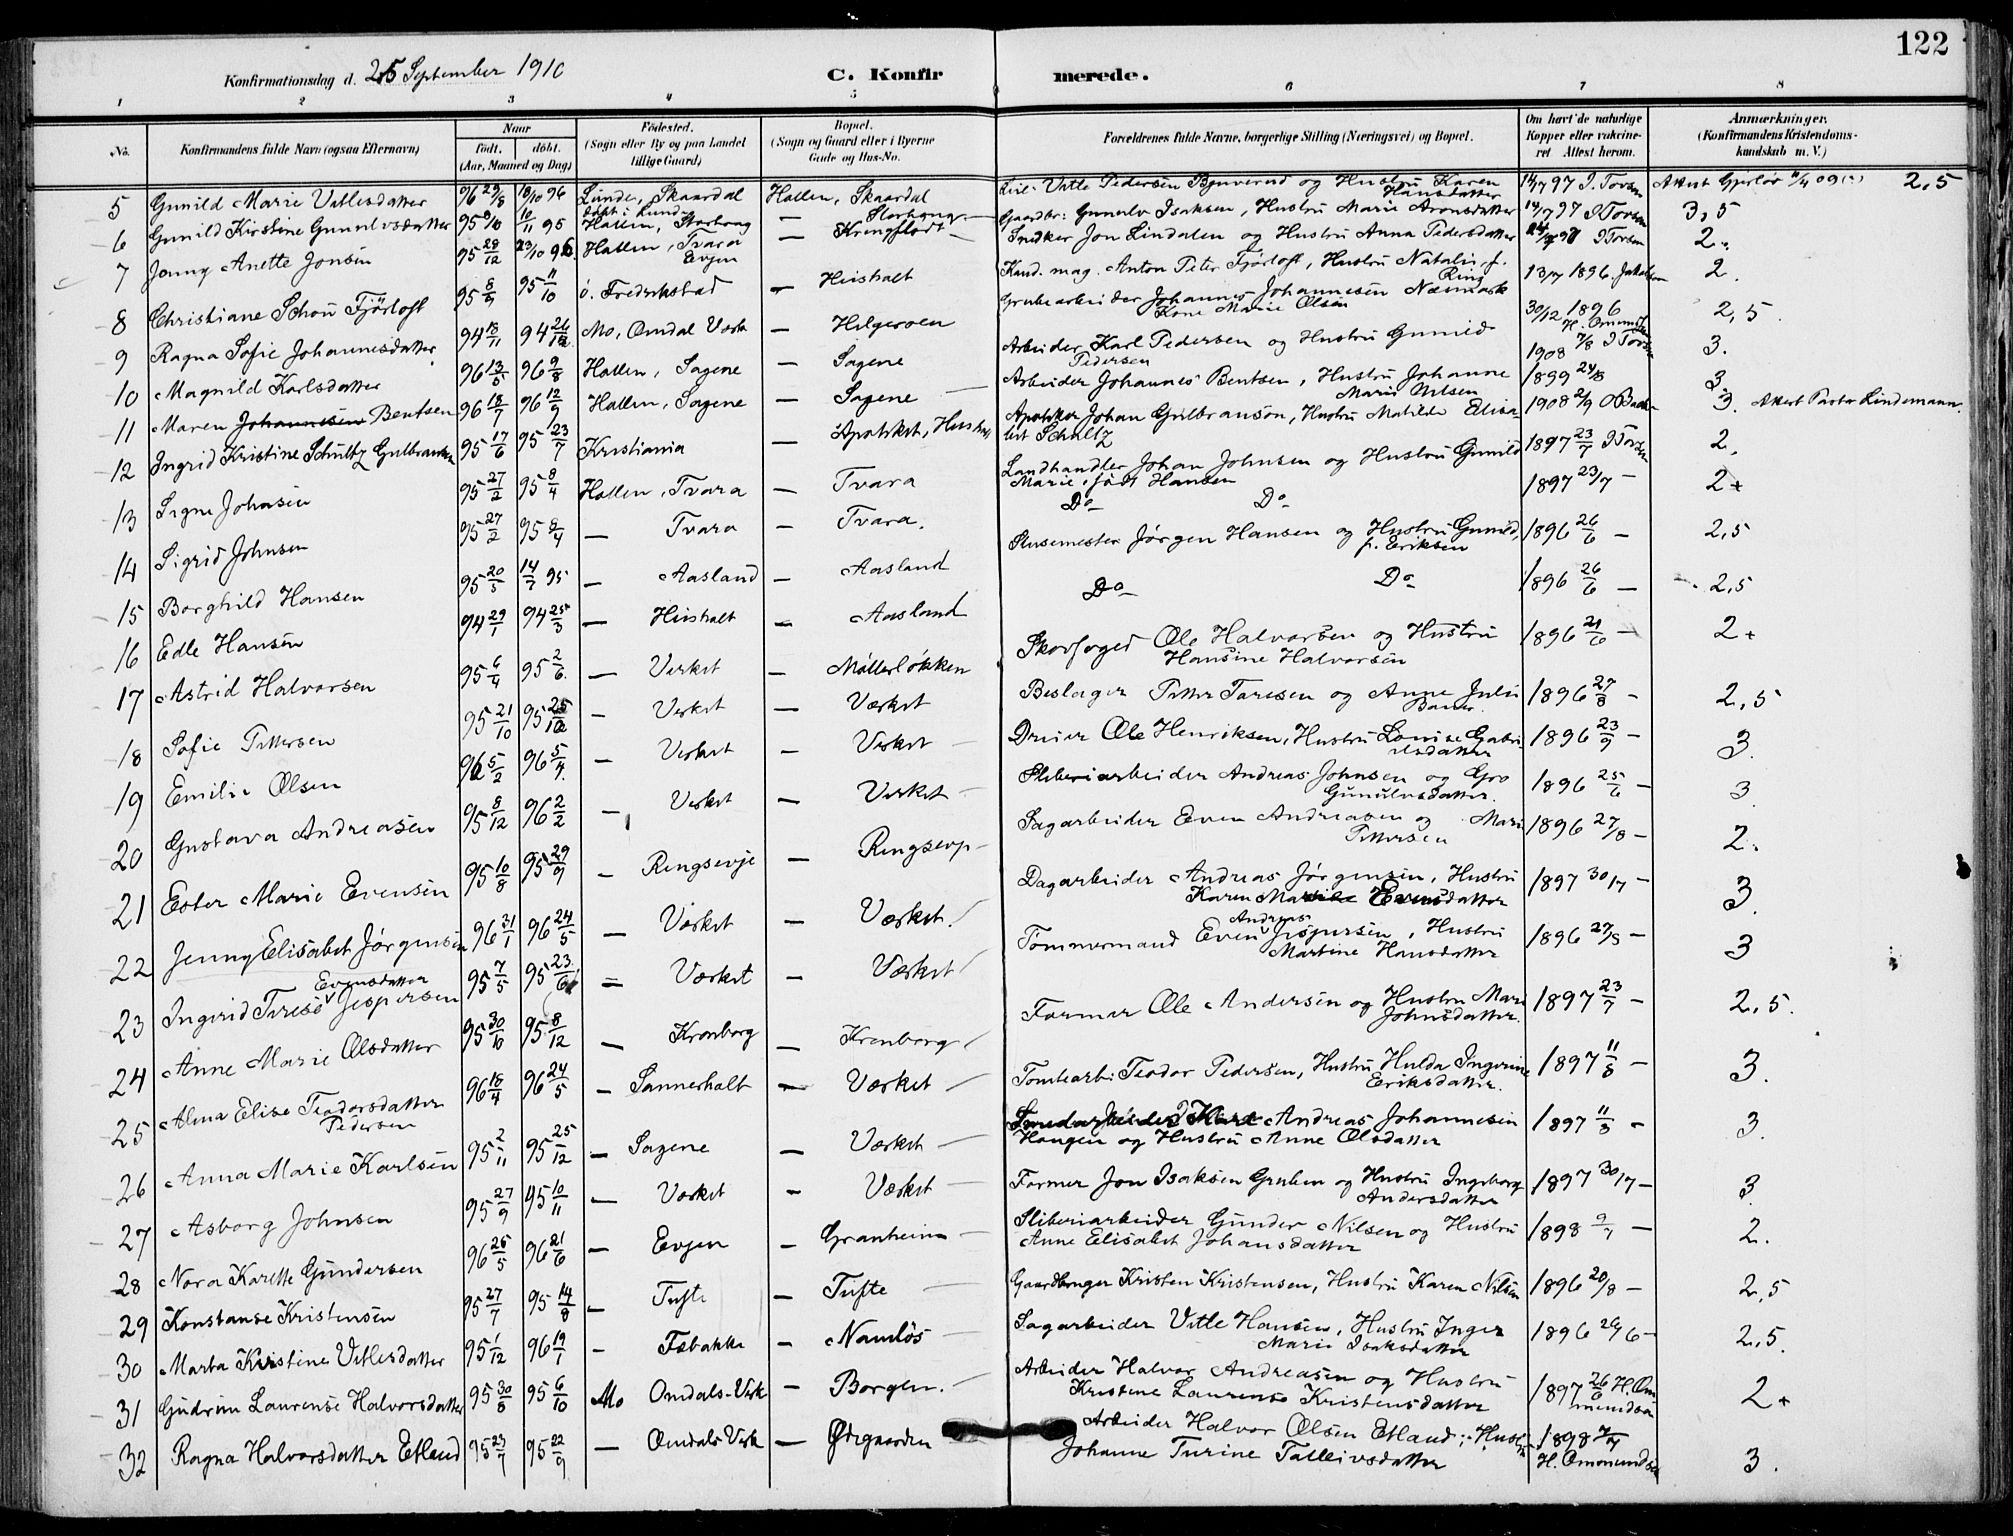 122
Konfirmationsdag d. 25 September 1910
C. Konfirmerede.
1 2 3 4 5 6 7 8
No. Konfirmandens fulde Navn (ogsaa Efternavn) Naar født. døbt. (Aar, Maaned og Dag) Fødested. (Sogn eller By og paa Landet tillige Gaard) Bopæl. (Sogn og Gaard eller i Byerne Gade og Hus-No. Forældrenes fulde Navne, borgerlige Stilling (Næringsvei) og Bopæl. Om havt de naturlige Kopper eller vakcineret Attest herom. Anmærkninger. (Konfirmandens Kristendomskundskab m. V.)
5 Gunild Marie Vetlesdatter 96 29/8 18/10 96 Lunde, Skaardal døbt i Lunde Hollen, Skaardal Vetle Pedersen og Hustru Karen Hansdatter 14/7 97 I. Torsen 2,5
6 Gunild Kirstine Gunulvsdatter 95 10/11 95 Hollen, Storhaug — Storhaug Gaardbr: Gunulv Isaksen, Hustru Marie Aronsdatter 14/7 97 I Torsen 3,5
7 Jenny Anette Jonsen 95 28/12 23/10 96 Hollen, Tvara Evjen — Kringflodt Snedker Jon Lindalen og Hustru Anna Pedersdatter 97 I Torsen 2
8 Christiane Schou Fjørtoft 95 8/9 95 11/10 ö. Fredrikstad — Heishalt Kand. mag. Anton Peter Fjørtoft, Hustru Natalie f. Ring 13/7 1896 Jakobsen 2.
9 Ragna Sofie Johannesdatter 94 18/11 94 26/12 Mo, Omdal Værk — Helgeroen Grubearbeider Johannes Johannesen Næsmark Kone Marie Olsen 30/12 1896 2,5
10 Magnild Karlsdatter 96 13/5 96 9/8 Hollen, Sagene — Sagene Arbeider Karl Pedersen og Hustru Gunild Pedersen 1908 7/8 I Torsen 3.
11 Maren Johannesen Bentsen 96 18/7 96 12/9 Hollen, Sagene — Sagene Arbeider Johannes Bentsen, Hustru Johanne Marie Nilsen 1899 24/8 3
12 Ingrid Kristine Schultz Gulbranson 95 17/6 95 23/7 Kristiania — Apoteket, Apoteker Johan Gulbranson, Hustru Matilde Elisabet Schultz 1908 2/9 3. Attest Pastor Lindemann.
13 Signe Johnsen 95 27/2 95 8/4 Hollen, Tvara — Tvara Landhandler Johan Johnsen og Hustru Gunild Marie, født Hansen 1897 23/7 I Torsen 2.
14 Sigrid Johnsen 95 27/2 95 8/4 — Tvara — Tvara. Do Do 1897 23/7 — 2+
15 Borghild Hansen 95 20/5 14/7 95 — Aasland — Aasland Slusemester Jørgen Hansen og Hustru Gunild, f. Eriksen 1896 26/6 — 2,5
16 Edle Hansen 94 29/1 94 25/3 — Heishalt — Aasland Do Do 1896 26/6 — 2,5
17 Astrid Halvorsen 95 6/4 95 2/6. — Verket — Møllerløkken Skovfoged Ole Halvorsen og Hustru Hansine Halvorsen 1896 21/6 — 2+
18 Sofie Pettersen 95 21/10 95 25/12 — Verket — Værket Beslager Petter Taresen og Anne Julie 1896 27/8 — 2,5
19 Emilie Olsen 96 5/2 96 5/4. — Verket — Verket Dreier Ole Henriksen, Hustru Lovise Gabrielsdatter 1896 23/9 — 3.
20 Gustava Andreasen 95 8/12 96 2/2 — Verket — Verket Sliberiarbeider Andreas Johnsen og Gro Gunulvsdatter. 1896 25/6 — 3
21 Ester Marie Evensen 95 10/8 95 29/9 — Ringsevje — Ringsevje Sagarbeider Even Andreasen og Marie Pettersen 1896 27/8 — 2.
22 Jenny Elisabet Jørgensen 96 31/1 96 24/5 — Værket — Værket. Dagarbeider Andreas Jørgensen, Hustru Karen Evensdatter 1897 30/7 — 3.
23 Ingerid Terese Evensdatter Jespersen 95 7/5 95 23/6 — Værket — Værket Tømmermand Even Andreas Jespersen, Hustru Martine Hansdatter 1896 27/8 — 3
24 Anne Marie Olsdatter 95 30/10 95 8/12 — Kronborg — Kronborg Former Ole Andersen og Hustru Mari Johnsdatter. 1897 23/7 — 2,5.
25 Alma Elise Teodorsdatter Pedersen 96 18/4 96 24/5 — Sannerholt — Værket Tomtearb: Teodor Pedersen, Hustru Hulda Ingerine Eriksdatter. 1897 11/8 — 3.
26 Anna Marie Karlsen 95 2/11 95 25/12 — Sagene — Værket Andreas Johannesen Haugen og Hustru Anne Olsdatter 1897 11/8 — 3.
27 Asborg Johnsen 95 27/9 95 10/11 — Verket — Værket Former Jon Isaksen Gruben og Hustru Ingeborg Andersdatter 1897 30/7 — 3
28 Nora Karette Gundersen 96 25/5 96 21/6 — Evjen — Granheim Sliberiarbeider Gunder Nilsen og Hustru Anne Elisabet Johansdatter 1898 9/7 — 2.
29 Konstanse Kristensen 95 27/7 95 14/8 — Tufte — Tufte Gaardbruger Kristen Kristensen, Hustru Karen Nilsen 1896 20/8 — 2,5
30 Marta Kristine Vetlesdatter 95 1/12 96 19/1 — Febakke — Namløs Sagarbeider Vetle Hansen, Hustru Inger Marie Isaksdatter 1896 26/6 — 2,5.
31 Gudrun Laurense Halvorsdatter 95 30/8 95 6/10 Mo Omdals-Verk — Borgen. Arbeider Halvor Andreasen og Hustru Kristene Laurense Kristensdatter 1897 26/6 H. Ommundsen 2+
32 Ragna Halvorsdatter Etland 95 23/7 95 22/9 — Omdals Verk — Ødegaarden Arbeider Halvor Olsen Etland; Hustru Johanne Turine Talleivsdatter 1898 7/7 H. Ommundsen 3.